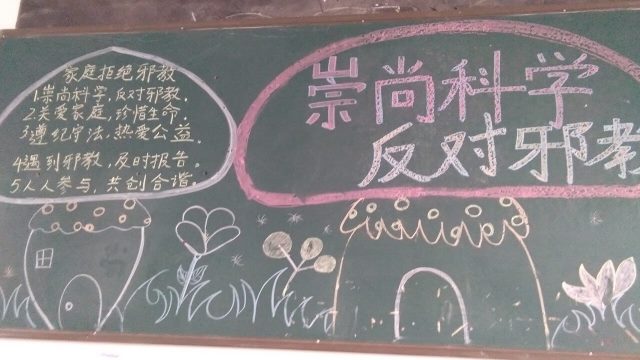 家庭拒绝邪教
1.崇尚科学,反对邪教.
2.关爱家庭,珍惜生命.
3遵纪守法,热爱公益.
4遇到邪教,及时报告。
5人人参与,共创合谐.
崇尚科学
反对邪教